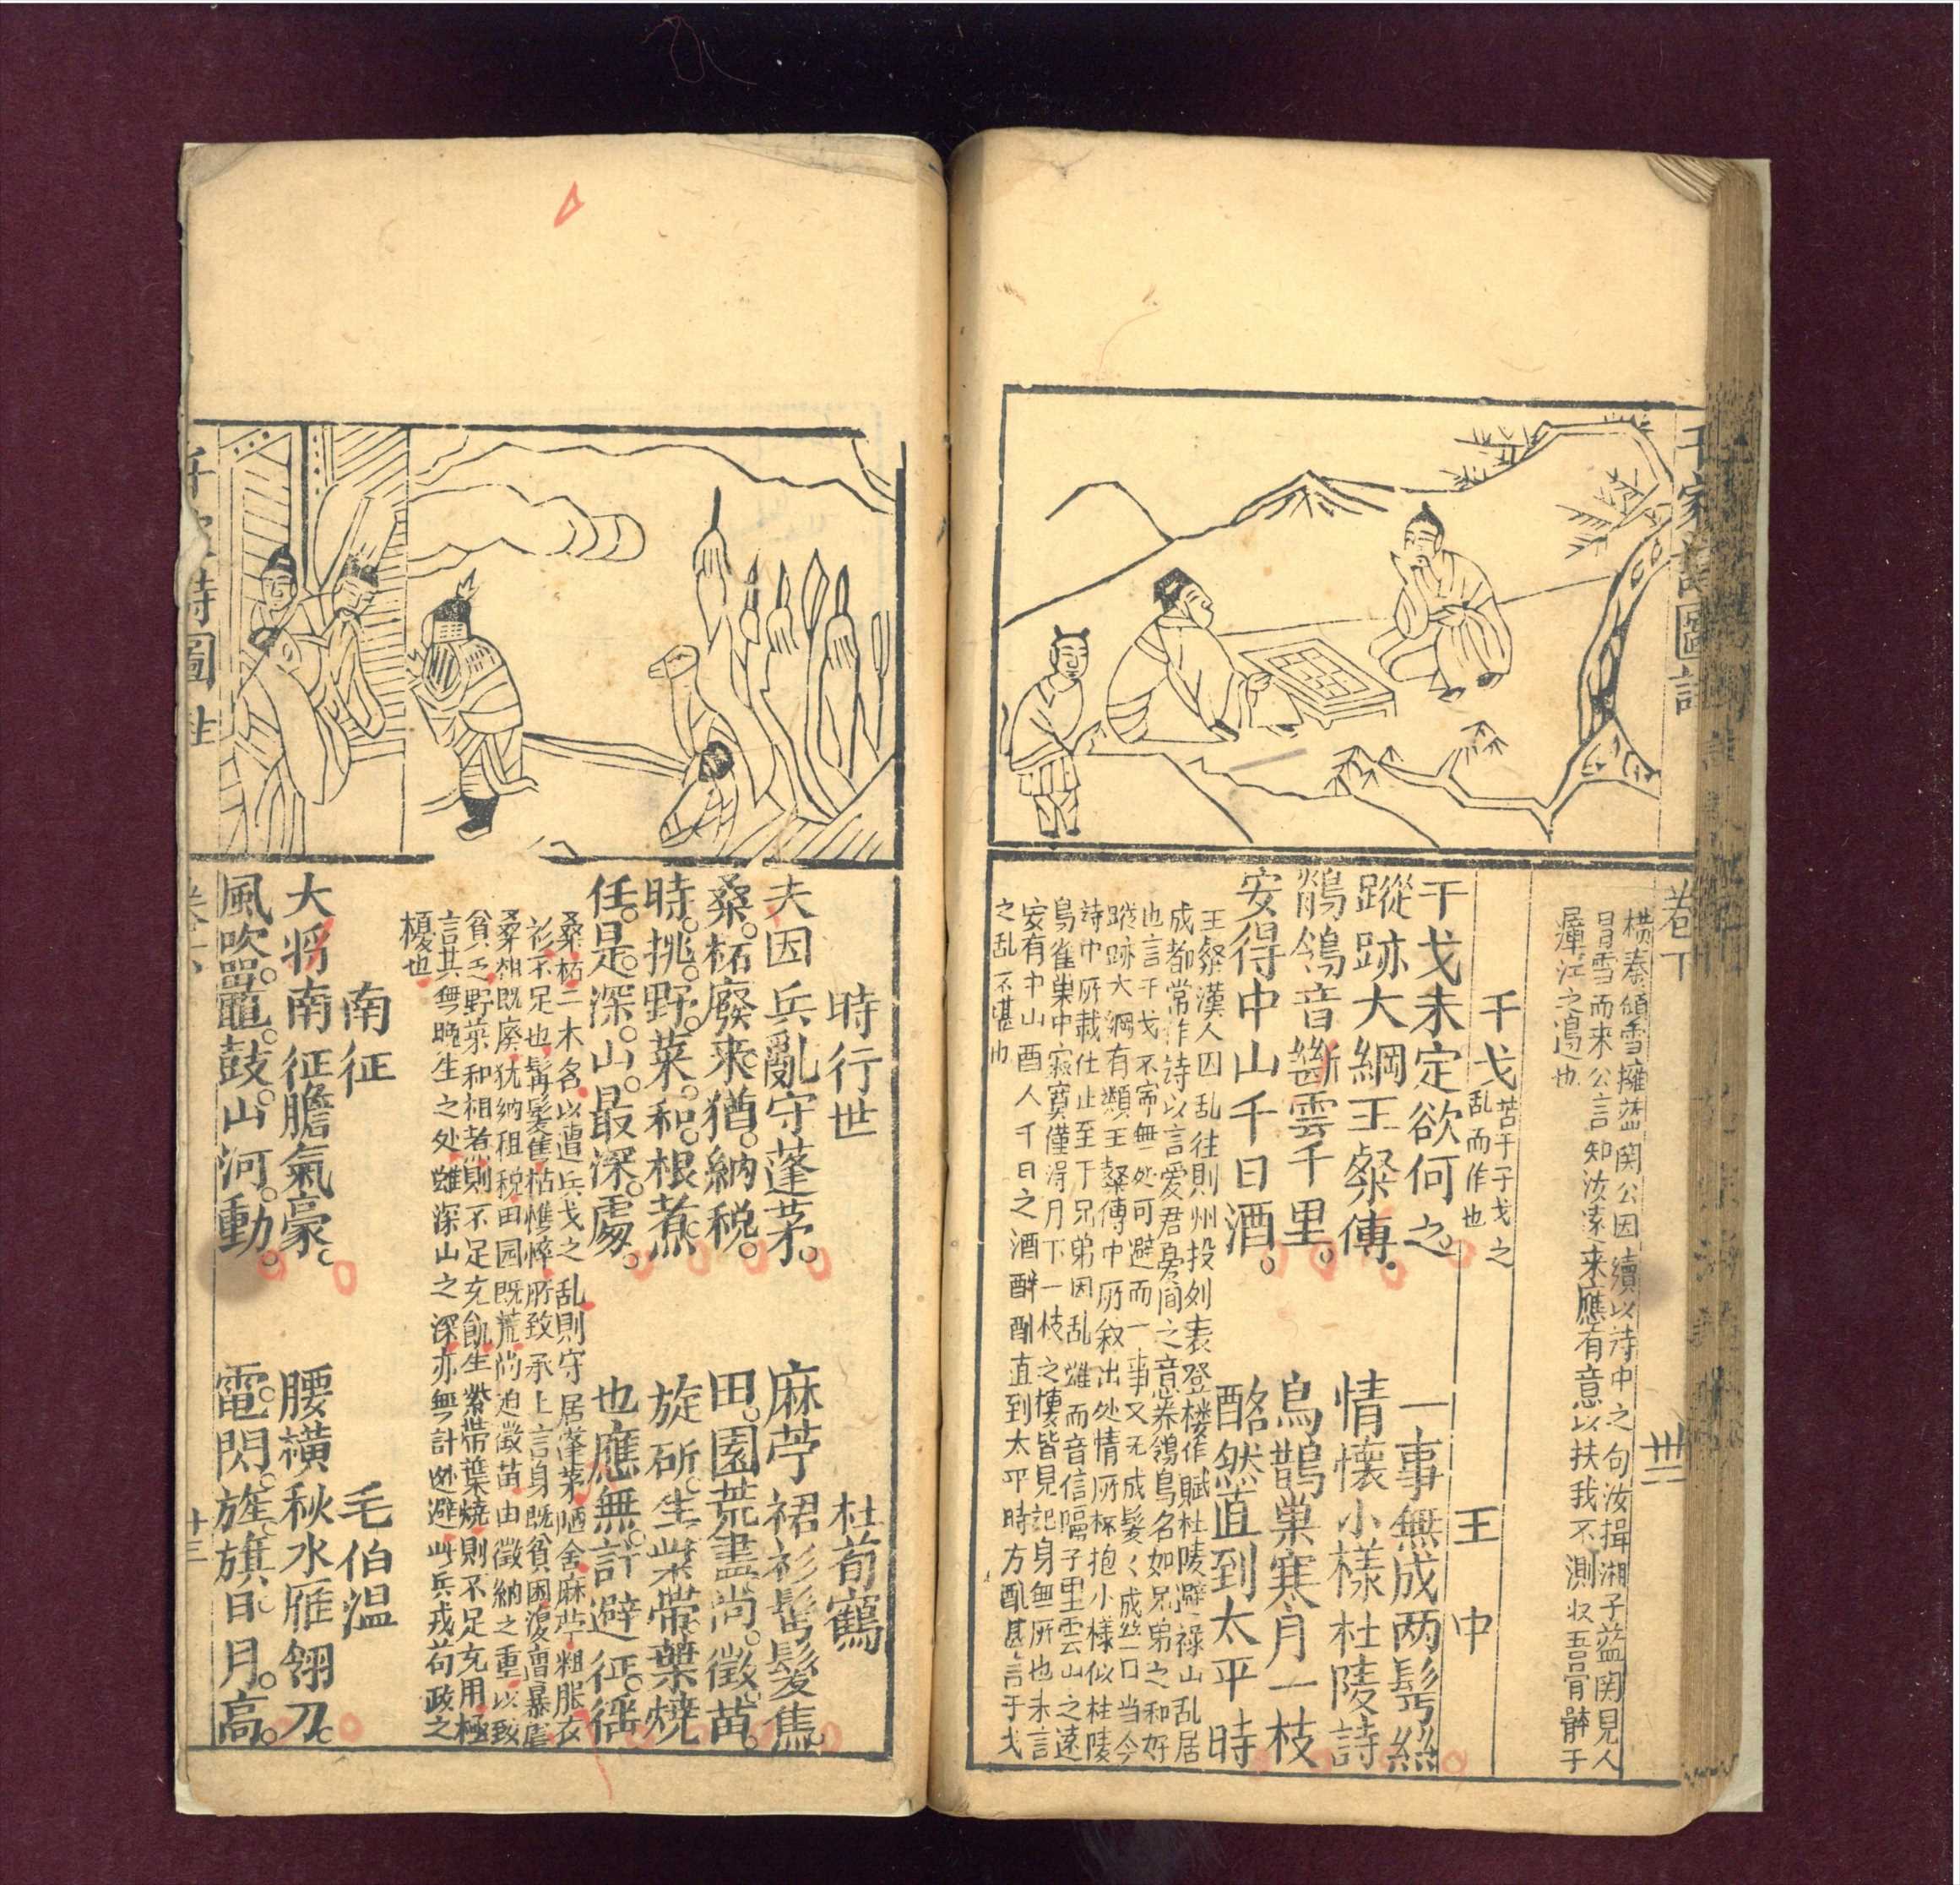 千家詩圖註
卷下
卅二
橫秦嶺雪擁蓝関公因續以诗中之句汝揖湘子蓝関見人
冐雪而来公言知汝遠来應有意以扶我不測収吾骨骵于
瘴江之邉也
干戈
苦于干戈之
乱而作也
王中
干戈未定欲何之。一事無成两鬂絲
蹤跡大綱王粲傳。情懷小樣杜陵詩
鶺鴒音斷雲千里。烏鵲巢寒月一枝
安得中山千日酒。酩然直到太平時
王粲漢人因乱往則州投刘表登楼作賦杜陵避禄山乱居
成都常作诗以言爱君
也言干戈不寧無一处可避而一事又无成髮〻成丝
蹤跡大綱有類王粲傳中所叙出处情所杯抱小樣似杜陵
詩中所載
烏雀巢中寂寞僅得月下一枝之棲
安有中山酉人千日之酒
之乱不堪也
時行世
杜荀鶴
夫因兵亂守蓬茅。麻苧裙衫鬂髮焦。
桑。柘廢来。猶。納税。田。園荒盡尚。徵苗。
時。挑。野。菜。和。根煮。旋斫。生柴帶。葉燒
任。是。深。山。最深。處。也應無。計避征。徭
桑柘二木名以遭兵戈之乱則守居蓬茅陋舍麻苧粗服衣
衫不足也髯髪焦枯憔悴所致承上言身既貧困復遭暴虐
桑柘既廢犹纳租税田园既荒尚迫徵苗由徵納之重以致
貧乏野菜和相煮則不足充飢生柴带葉燒則不足充用極
言其無聊生之处雖深山之深亦無計逊避此兵戎苟政之
櫌也
南征
毛伯温
大将南征膽氣豪。腰橫秋水雁翎刀。
風吹。鼉。鼓。山河。動。電。閃。旌。旗。日月。高。
千家詩圖註
卷下
廿三